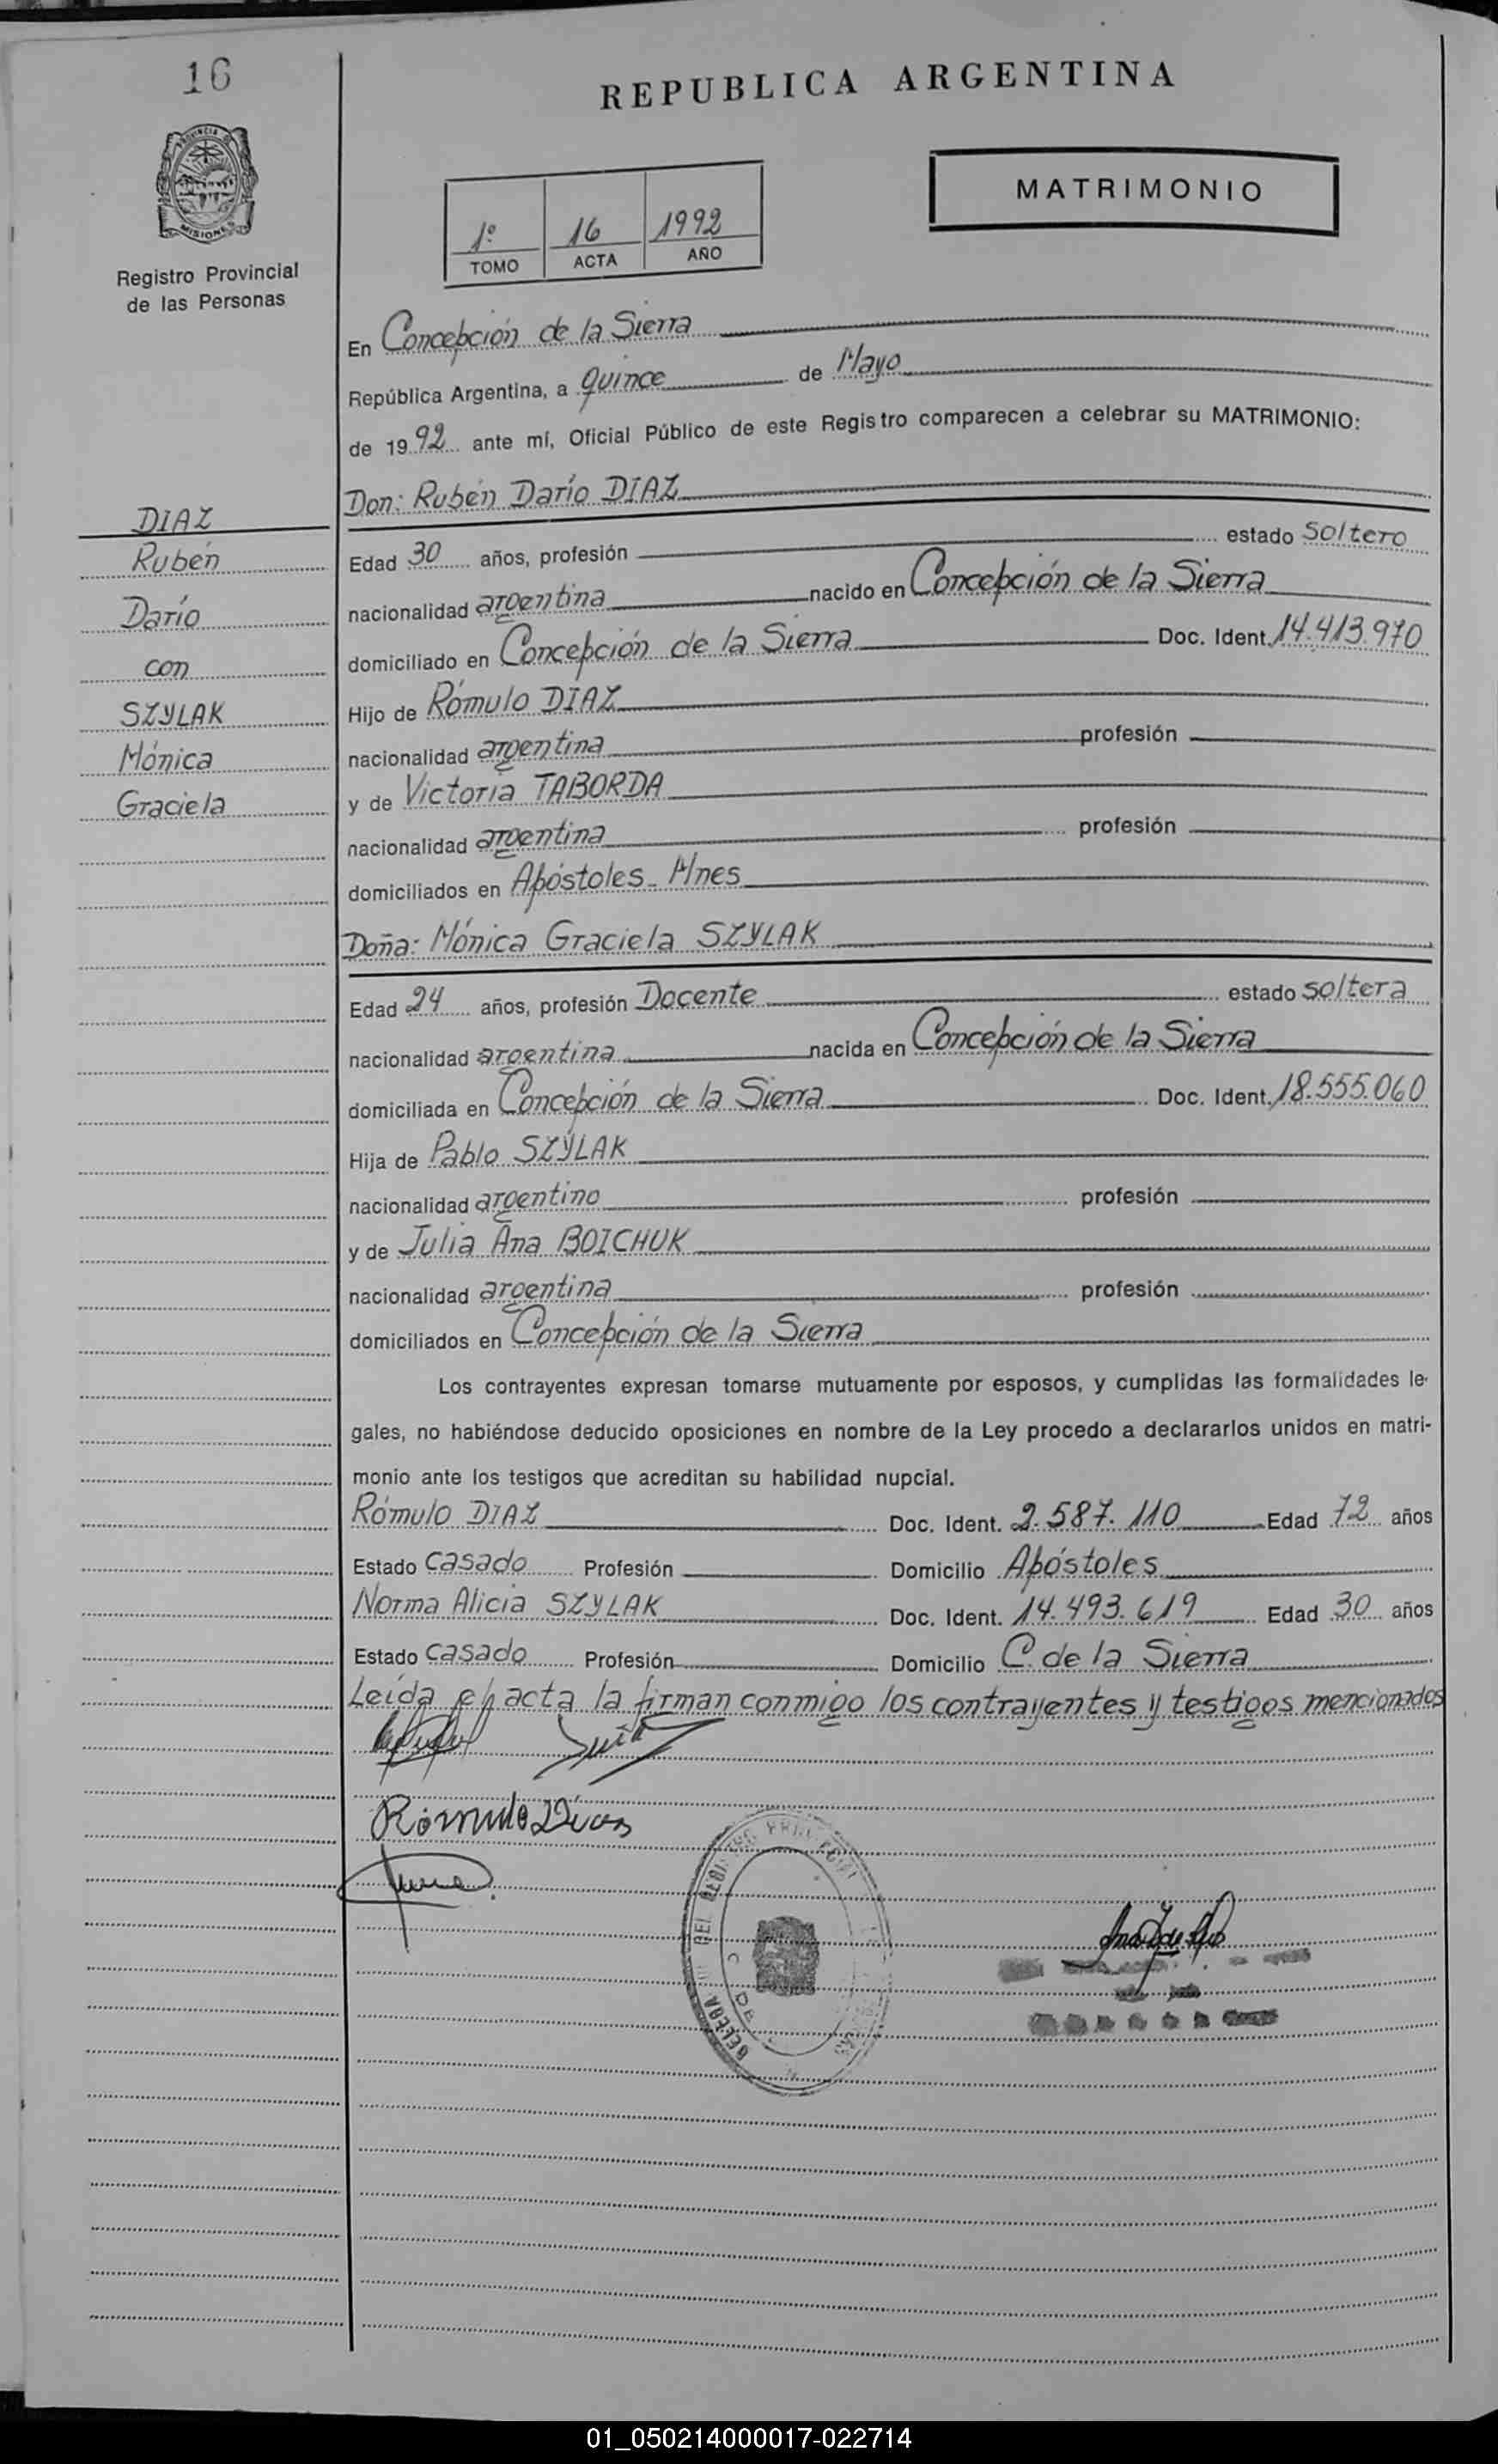 16
REPUBLICA ARGENTINA
PROVINCIA
MISIONES
MATRIMONIO
1º 16 1992
TOMO ACTA AÑO
Registro Provincial
de las Personas
En Concepción de la Sierra
República Argentina, a quince de Mayo
de 1992 ante mí, Oficial Público de este Registro comparecen a celebrar su MATRIMONIO:
DIAZ
Rubén
Darío
con
SZYLAK
Mónica
Graciela
Don: Rubén Darío DIAZ
Edad 30 años, profesión estado soltero
nacionalidad argentina nacido en Concepción de la Sierra
domiciliado en Concepción de la Sierra Doc. Ident. 14.413.970
Hijo de Rómulo DIAZ
nacionalidad argentina profesión
y de Victoria TABORDA
nacionalidad argentina profesión
domiciliados en Apóstoles - Mnes
Doña: Mónica Graciela SZYLAK
Edad 24 años, profesión Docente estado soltera
nacionalidad argentina nacida en Concepción de la Sierra
domiciliada en Concepción de la Sierra Doc. Ident. 18.555.060
Hija de Pablo SZYLAK
nacionalidad argentino profesión
y de Julia Ana BOICHUK
nacionalidad argentina profesión
domiciliados en Concepción de la Sierra
Los contrayentes expresan tomarse mutuamente por esposos, y cumplidas las formalidades le-
gales, no habiéndose deducido oposiciones en nombre de la Ley procedo a declararlos unidos en matri-
monio ante los testigos que acreditan su habilidad nupcial.
Rómulo DIAZ Doc. Ident. 2.587.110 Edad 72 años
Estado casado Profesión Domicilio Apóstoles
Norma Alicia SZYLAK Doc. Ident. 14.493.619 Edad 30 años
Estado casado Profesión Domicilio C. de la Sierra
Leída el acta la firman conmigo los contrayentes y testigos mencionados
Rómulo Dias
01_050214000017-022714